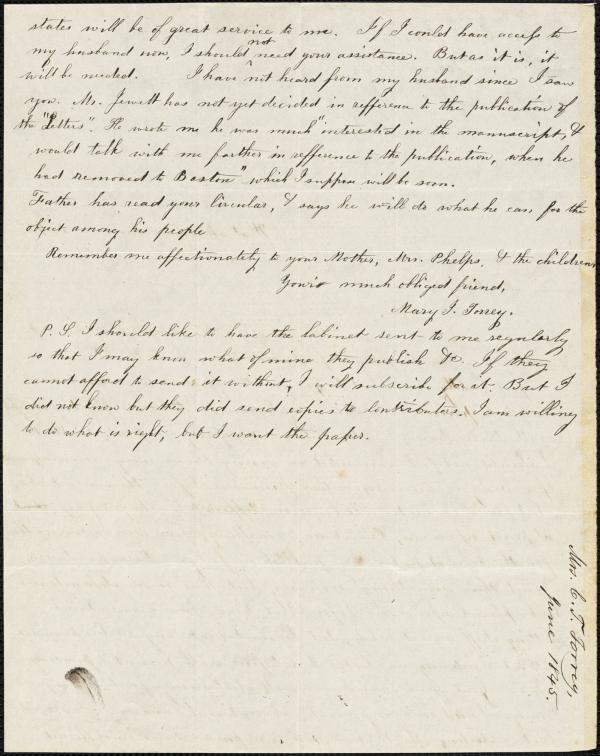 states will be of great service to me. If I could have access to
my husband now, I should not need your assistance. But as it is, it
will be needed. I have not heard from my husband since I saw
you. Mr. Jewett has not yet decided in refference to the publication of
the "Letters". He wrote me he was much "interested in the manuscript, &
would talk with me farther in refference to the publication, when he
had removed to Boston" which I suppose will be soon.
Father has read your Circular, & says he will do what he can for the
object among his people
Remember me affectionately to your Mother, Mrs. Phelps, & the children
Your's much obliged friend,
Mary I. Torrey.
P.S. I should like to have the Cabinet sent to me regularly
so that I may know what of mine they publish &c. If they
cannot afford to send it without, I will subscribe for it. But I
did not know but they did send copies to contributors. I am willing
to do what is right, but I want the paper.
Mrs. C. T. Torrey,
June 1845.